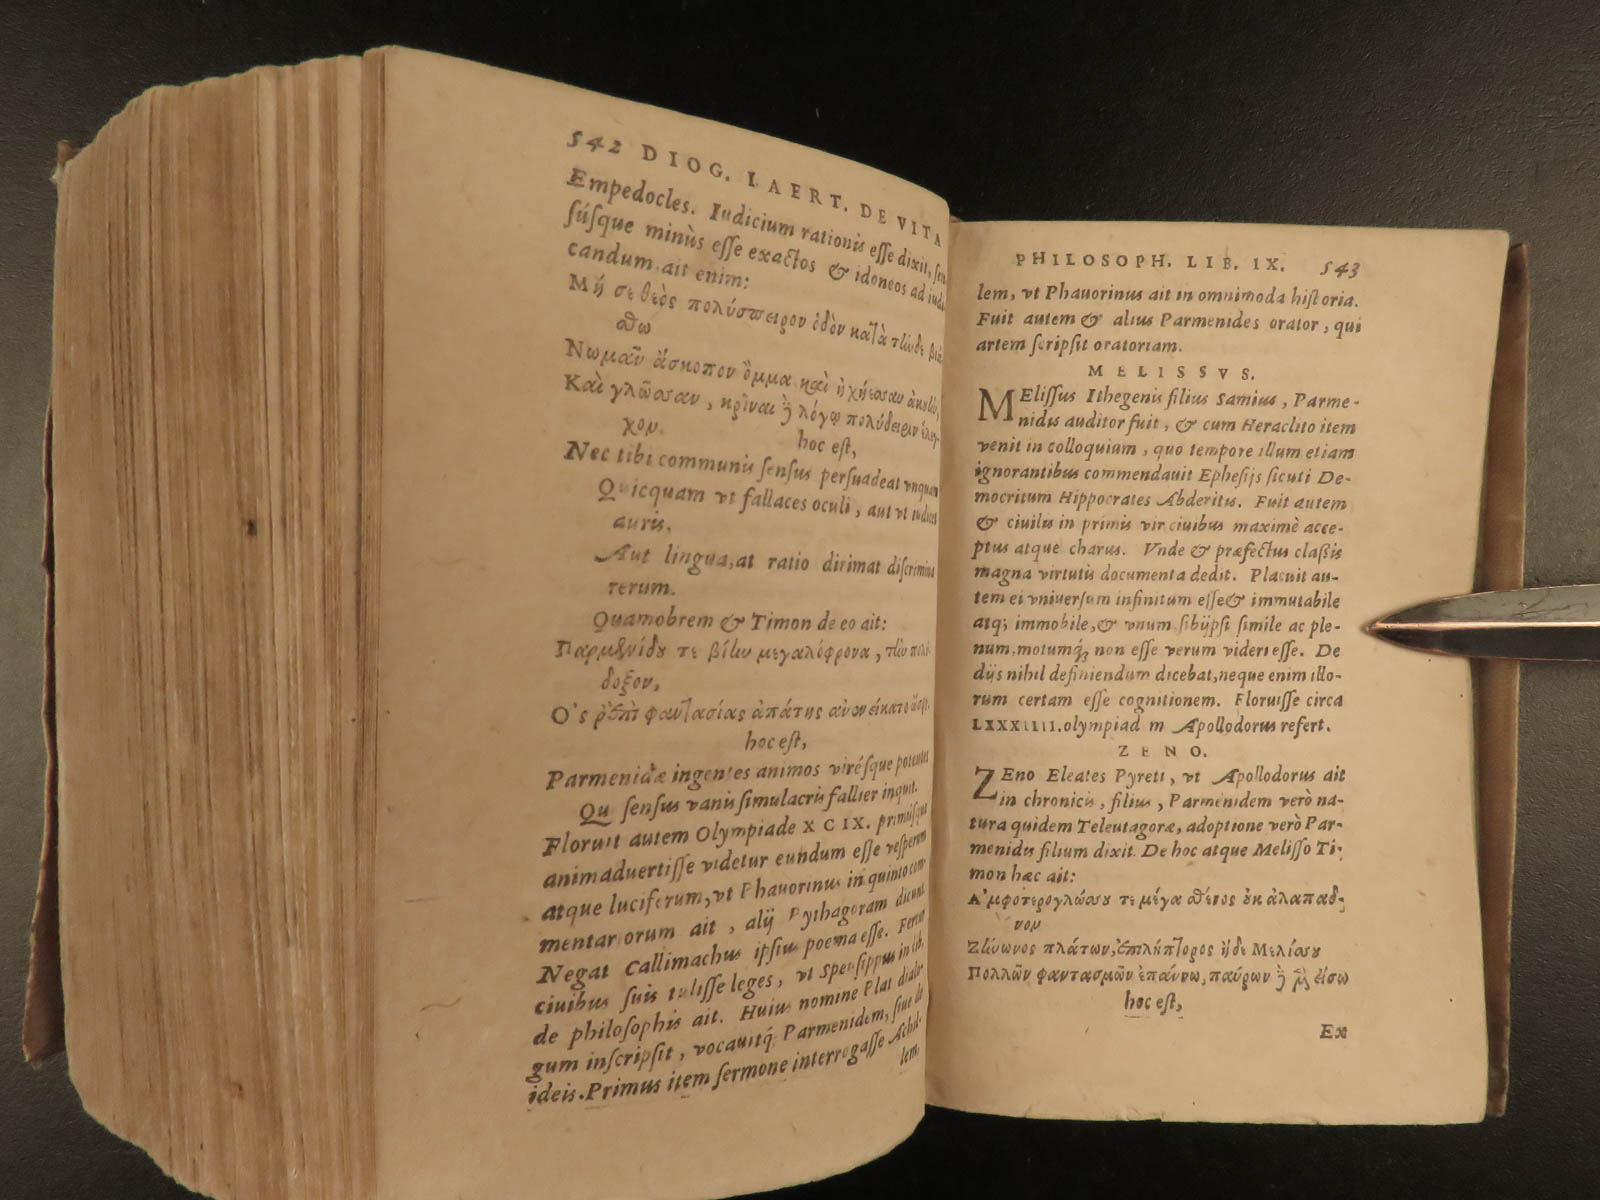 542 DIOG. LAERT. DE VITA
Empedocles. Iudicium rationis esse dixit, sen
súsque minùs esse exactos & idoneos ad iudi
candum. ait enim:
Μή σε θεὸς πολύπειρον ὁδὸν κατὰ τήνδε βιά
σθω
Νωμᾶν ἄσκοπον ὄμμα καὶ ἠχήεσσαν ἀκουὴν,
Καὶ γλῶσσαν, κρῖναι ἢ λόγῳ πολύδηριν ἔλεγ
χον. hoc est,
Nec tibi communis sensus persuadeat vnquam
Quicquam vt fallaces oculi, aut vt iudicet
auris.
Aut lingua, at ratio dirimat discrimina
rerum.
Quamobrem & Timon de eo ait:
Παρμενίδου τε βίην μεγαλόφρονα, τὴν πολύ-
δοξον,
Ο῾ς ῥ᾽ ἐπὶ φαντασίας ἀπάτης
hoc est,
Parmenidæ ingentes animos virésque potentes
Qui sensus vanis simulacris fallier inquit.
Floruit autem Olympiade XCIX. primúsque
animaduertisse videtur eundum esse vesperum
atque luciferum, vt Phauorinus in quinto com
mentariorum ait, alij Pythagoram dicunt
Negat Callimachus ipsius poema esse. Fertur
ciuibus suis tulisse leges, vt Speusippus in lib.
de philosophis ait. Huius nomine Plat dialo-
gum inscripsit, vocauitq́ Parmenidem, siue de
ideis. Primus item sermone interrogasse Achil-
lem,
PHILOSOPH. LIB. IX. 543
lem, vt Phauorinus ait in omnimoda historia.
Fuit autem & alius Parmenides orator, qui
artem scripsit oratoriam.
MELISSVS.
MElissus Ithegenis filius Samius, Parme-
nidis auditor fuit, & cum Heraclito item
venit in colloquiam, quo tempore illum etiam
ignorantibus commendauit Ephesijs sicuti De-
mocritum Hippocrates Abderitus. Fuit autem
& ciuilis in primis vir ciuibus maximè acce-
ptus atque charus. Vnde & præfectus classis
magna virtutis documenta dedit. Placuit au-
tem ei vniuersum infinitum esse & immutabile
atq; immobile, & vnum sibijpsi simile ac ple-
num, motumq́; non esse verum videri esse. De
dijs nihil definiendum dicebat, neque enim illo-
rum certam esse cognitionem. Floruisse circa
LXXXIIII. olympiadem Apollodorus refert.
ZENO.
ZEno Eleates Pyreti, vt Apollodorus ait
in chronicis, filius, Parmenidem verò na-
tura quidem Teleutagoræ, adoptione verò Par-
menidis filium dixit. De hoc atque Melisso Ti-
mon hæc ait:
Α᾽μφοτερογλώσσου τε μέγα σθένος οὐκ ἀλαπαδ-
νον
Ζήνωνος πλάτων, ἐπιλήπτορος ἠδὲ Μελίσσου
Πολλῶν φαντασμῶν ἐπάνω, παύρων εἴσω
hoc est,
Ex